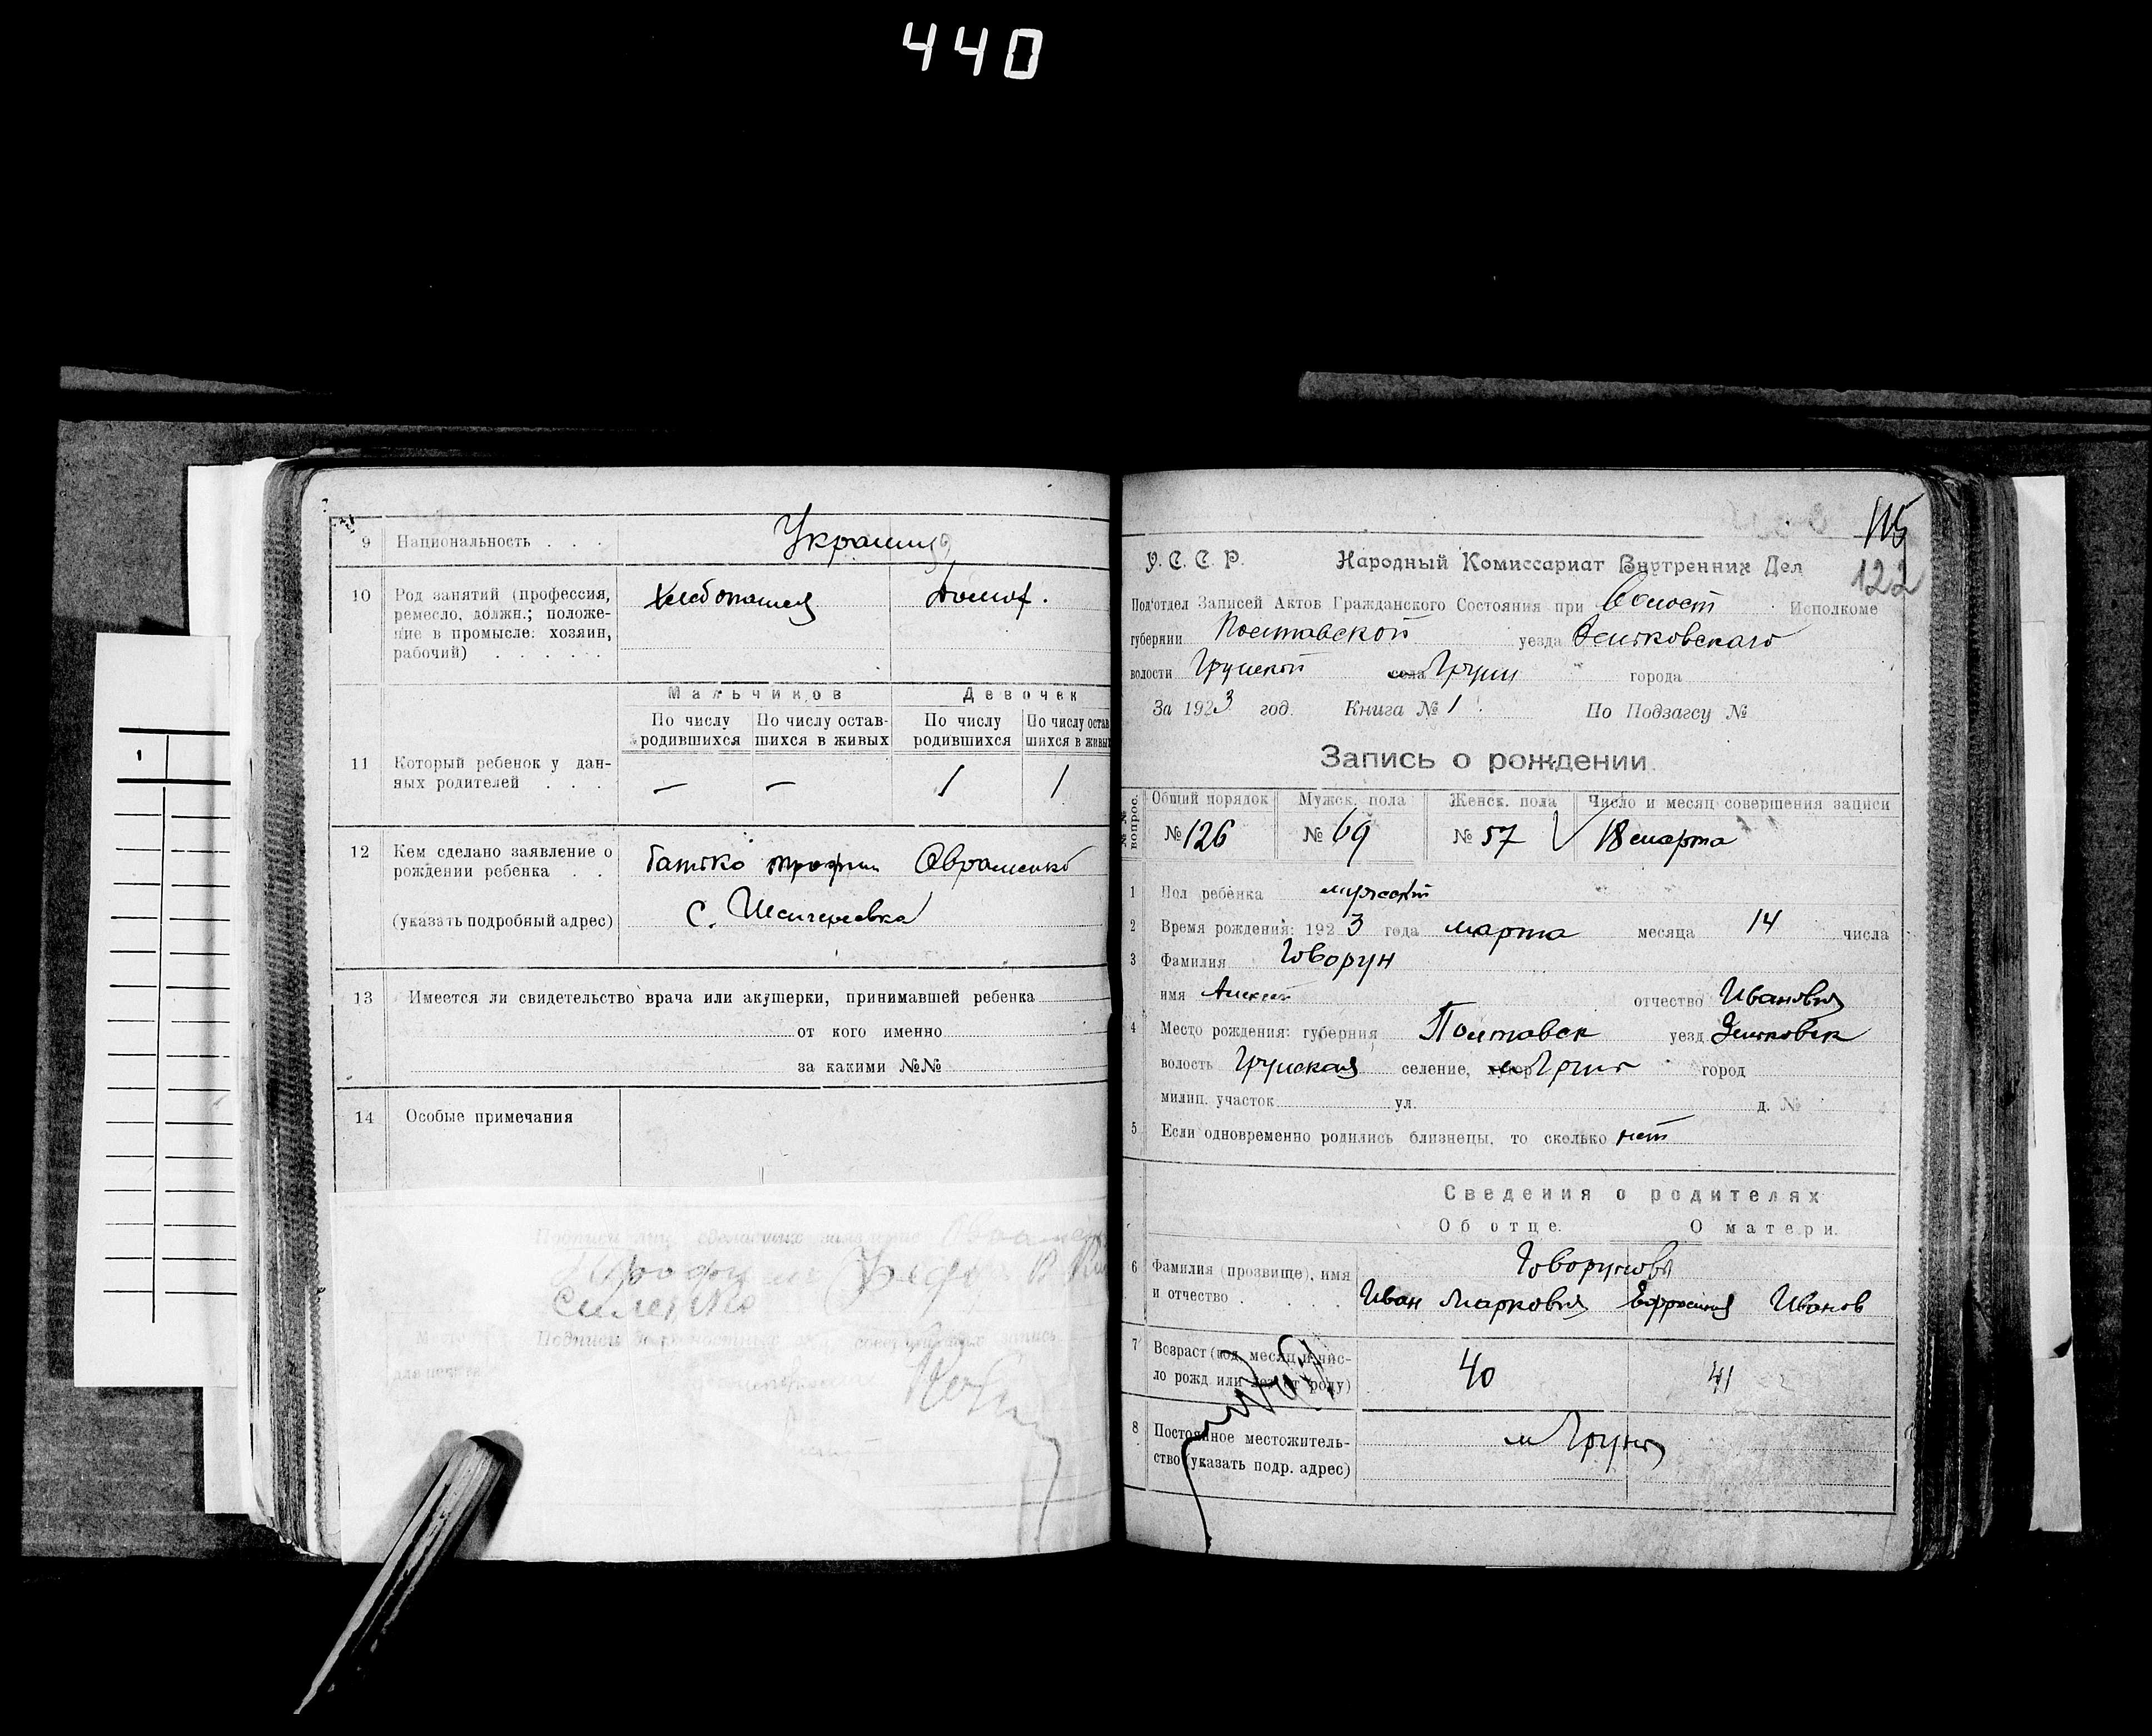 440
9 Национальность . . . Украинц
10 Род занятий (профессия, ремесло, должн.; положе-
ние в промысле: хозяин,
рабочий) . . . . . Хлебопашец Домох.
Мальчиков Девочек
По числу родившихся По числу остав-
шихся в живых По числу родившихся По числу остав
шихся в живых
11 Который ребенок у дан-
ных родителей . . . — — 1 1
12 Кем сделано заявление о
рождении ребенка . . батько Трофим Авраменко
(указать подробный адрес) с.
13 Имеется ли свидетельство врача или акушерки, принимавшей ребенка
от кого именно
за какими №№
14 Особые примечания
Подписи лиц сделавших заявление
115
122
У. С. С. Р. Народный Комиссариат Внутренних Дел
Под'отдел Записей Актов Гражданского Состояния при Волост Исполкоме
губернии Полтавской уезда Зеньковскаго
волости Грунской села Груни города
За 1923 год. Книга № 1. По Подзагсу №
Запись о рождении
№№ вопрос. Общий порядок Мужск. пола Женск. пола Число и месяц совершения записи
№ 126 № 69 № 57 18 марта
1 Пол ребенка мужской
2 Время рождения: 1923 года марта месяца 14 числа
3 Фамилия Говорун
имя Алексей отчество Иванович
4 Место рождения: губерния Полтавск уезд Зеньковск
волость Грунская селение, хутор м Грунь город
милиц. участок ул. д. №
5 Если одновременно родились близнецы, то сколько нет
Сведения о родителях
Об отце. О матери.
6 Фамилия (прозвище), имя
и отчество . . . . . Говорунова
Иван Маркович Ефросиния Иванов
7 Возраст (год, месяц и чис-
ло рожд. или лет от роду) 40 41
8 Постоянное местожитель-
ство (указать подр. адрес) м Грунь
1